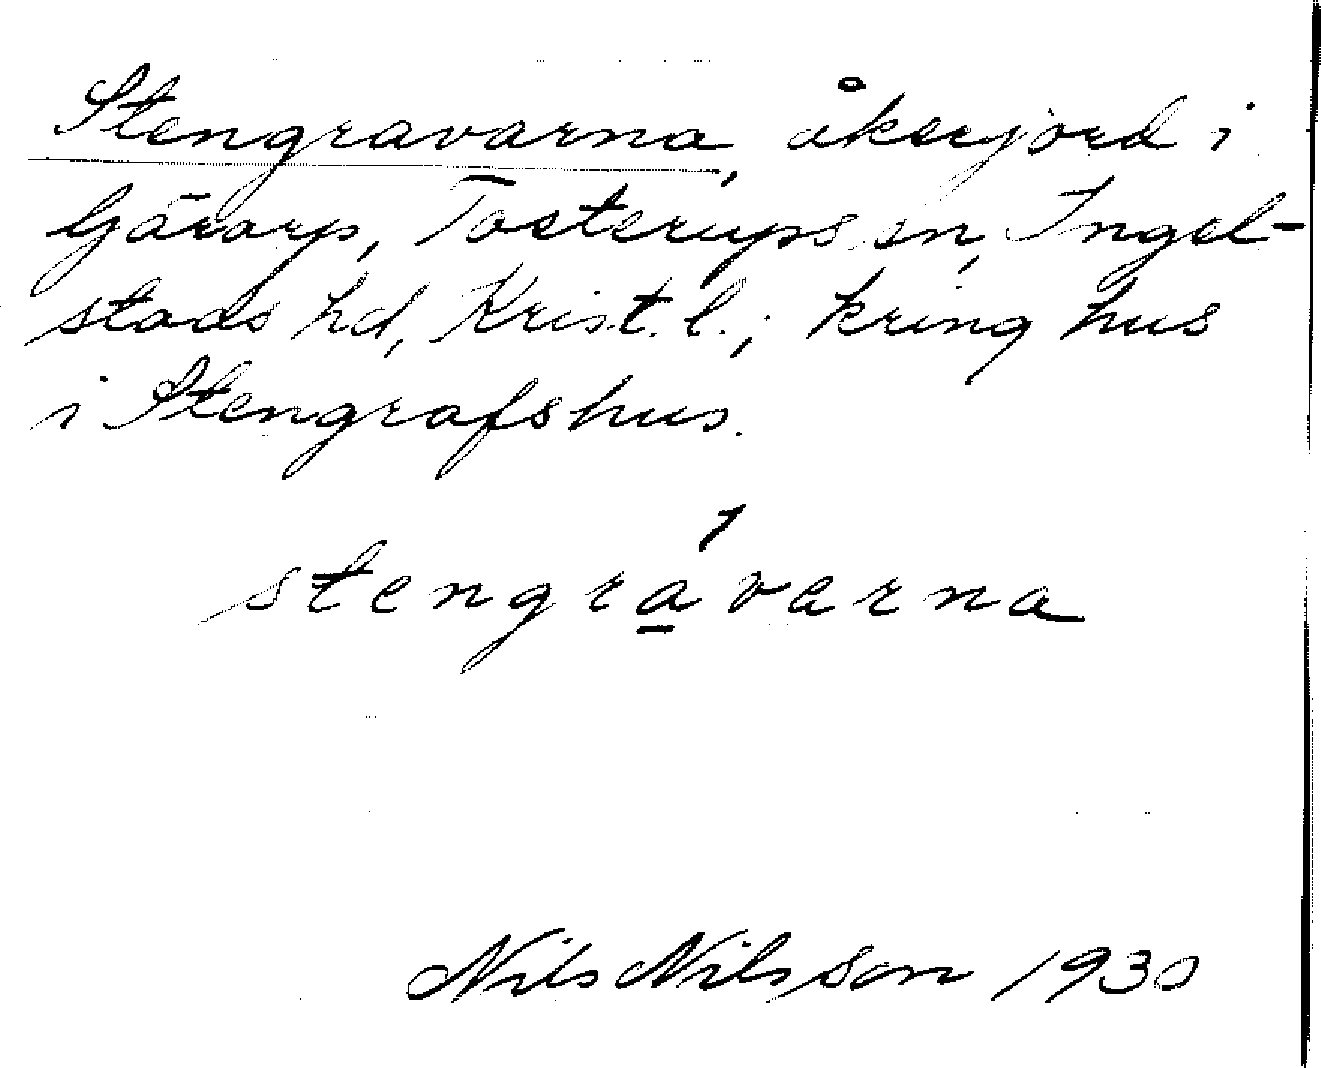 Stengravarna, åkerjord i
Gärarp, Tosterups sn, Ingel-
stads hd, Krist. l.; kring hus
i Stengrafshus.
stengrávarna
Nils Nilsson 1930